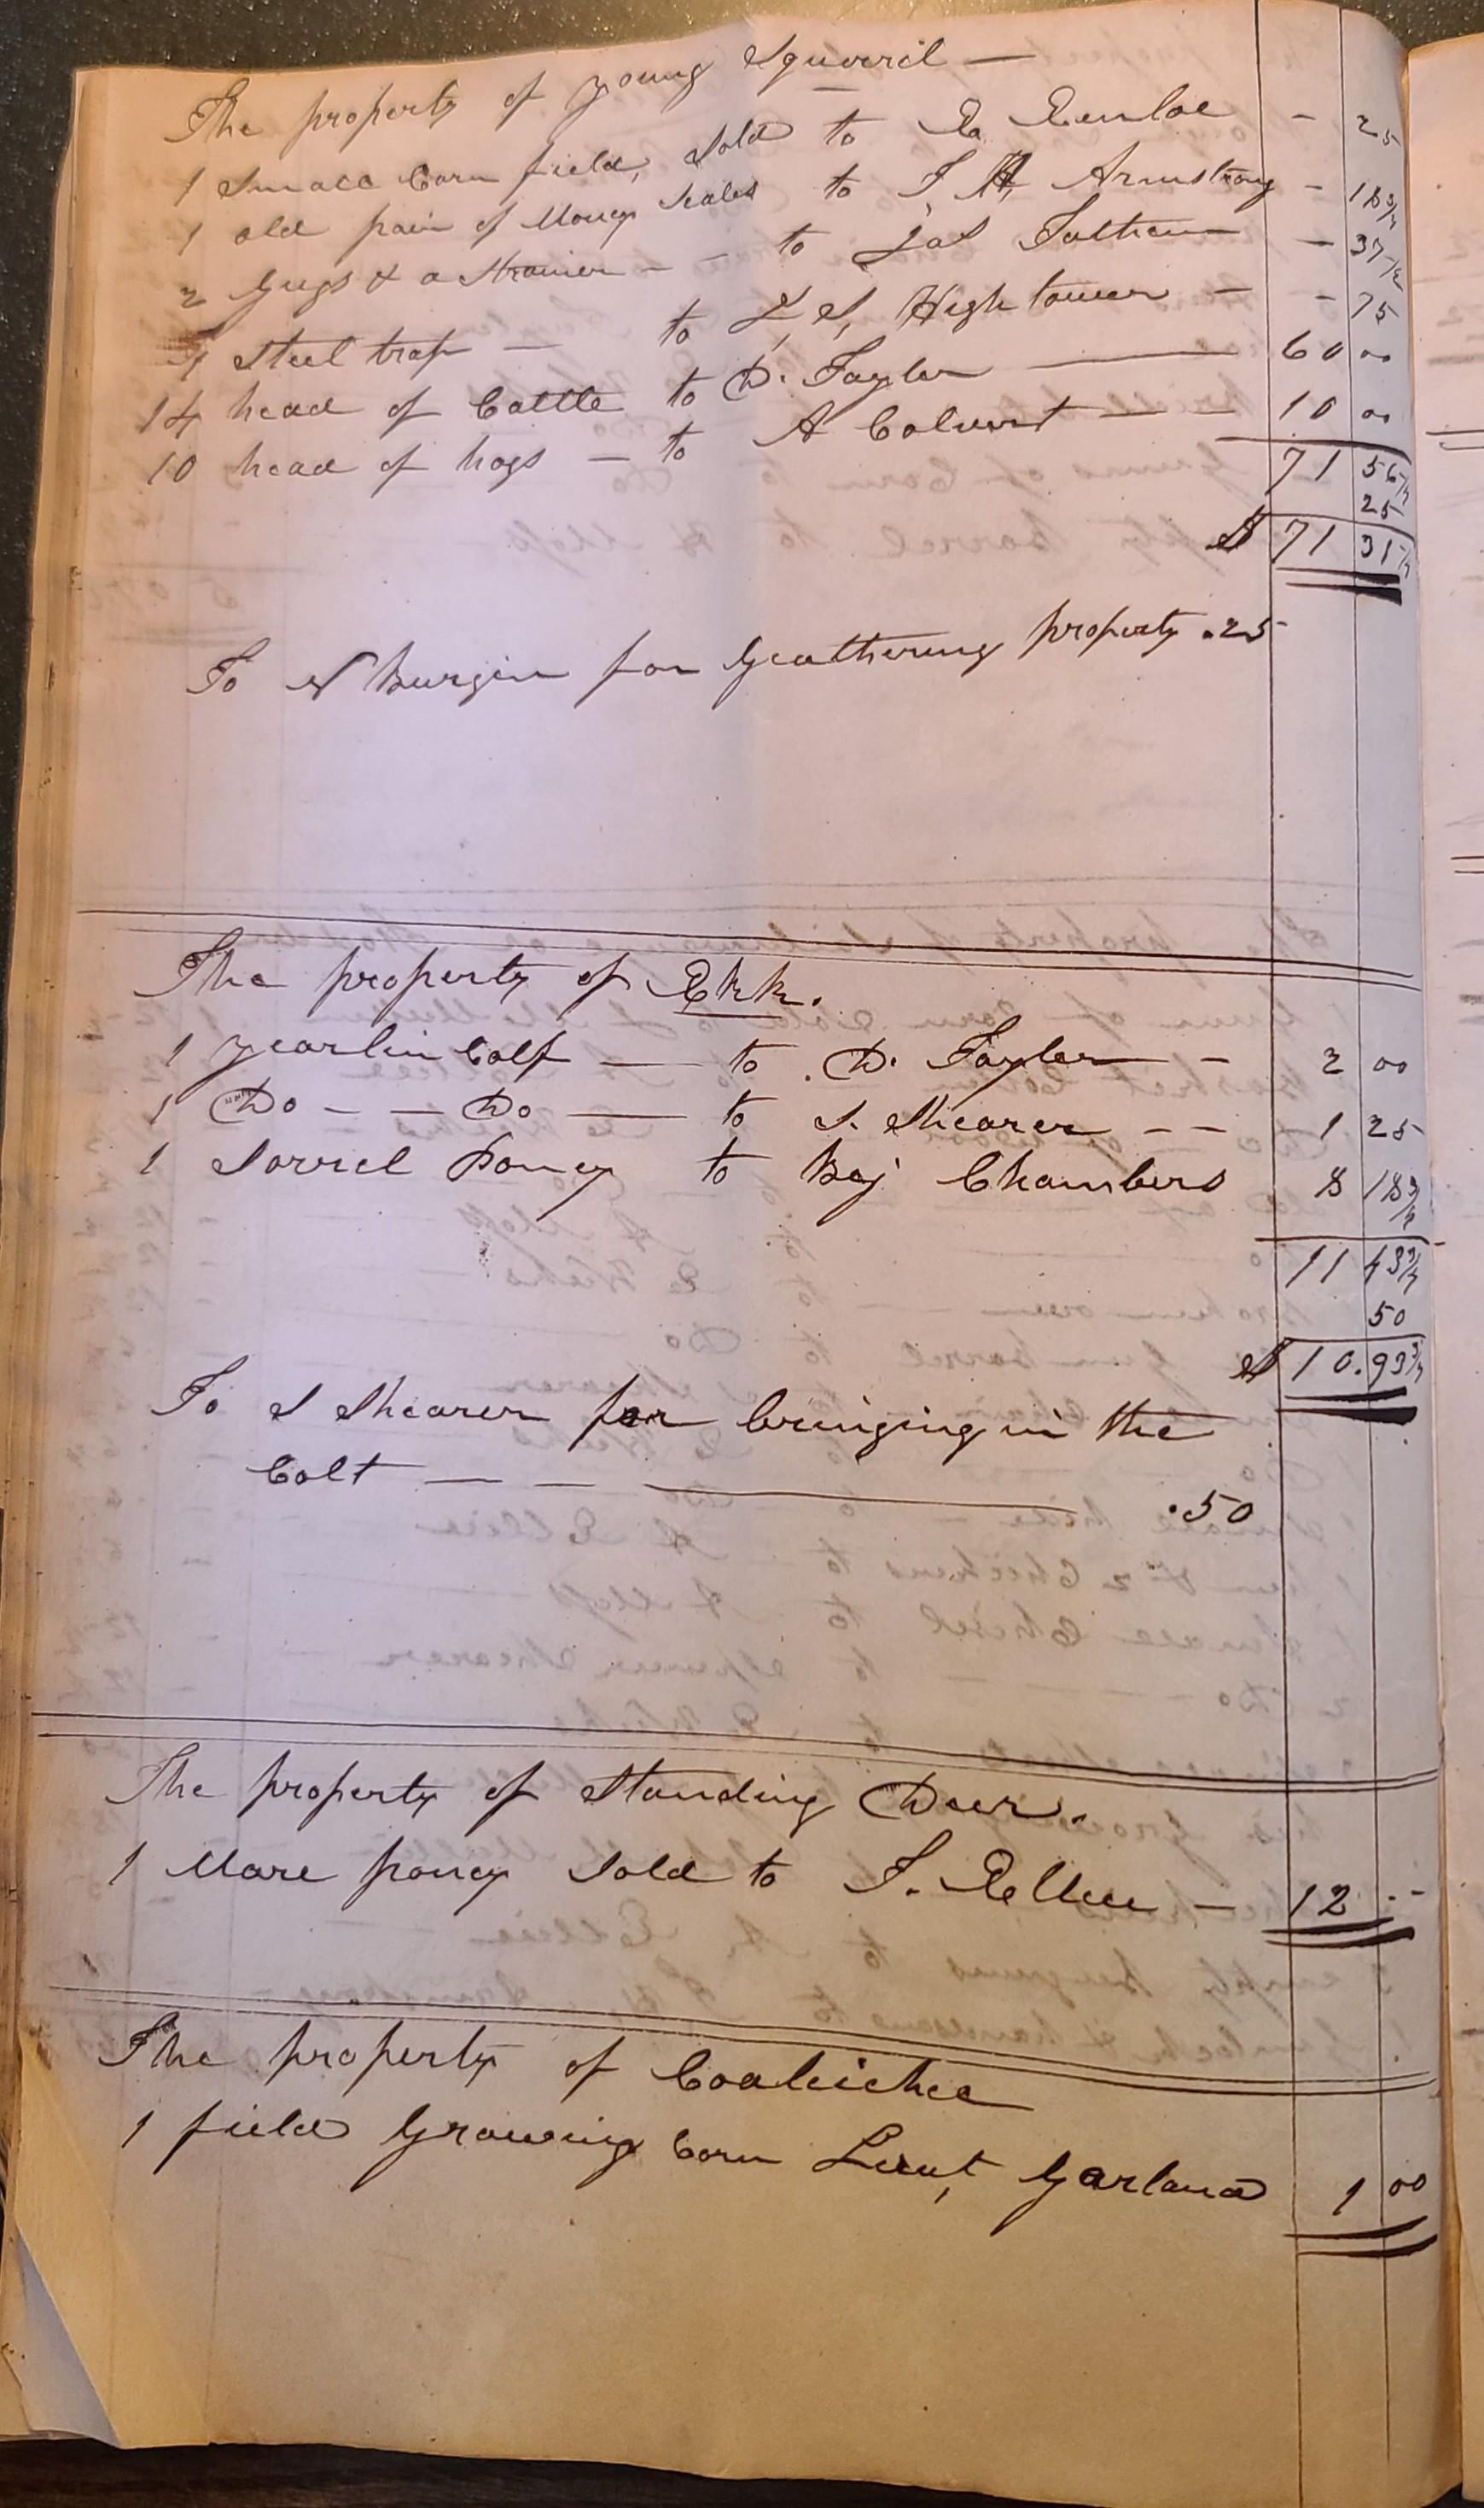 The property of young Squirril —
1 Small Corn field, Sold to E. Enloe - 25
1 old pair of Money Scales to T. H. Armstrong - 18 3/4
2 Jugs & a Strainer - - to Jas - 37 1/2
1 Steel trap — to J. S. Hightower - - 75
14 head of Cattle to D. Tayler — 60 00
10 head of hogs — to A Colvert - - 10 00
71 56 1/4
25
$ 71 31 1/4
To N Burgin for Geathering property .25
The property of Ekk.
1 yearlin Calf — to D. Tayler - 2 00
1 Do - - Do — to S. Shearer - - 1 25
1 Sorrel Poney to Baj Chambers 8 18 3/4
11 43 3/4
50
$ 10.93 3/4
To S Shearer for bringing in the
Colt - - - — .50
The property of Standing Deer.
1 Mare poney Sold to T. - 12 --
The property of
1 field Growing Corn Lieut, Garland 1 00